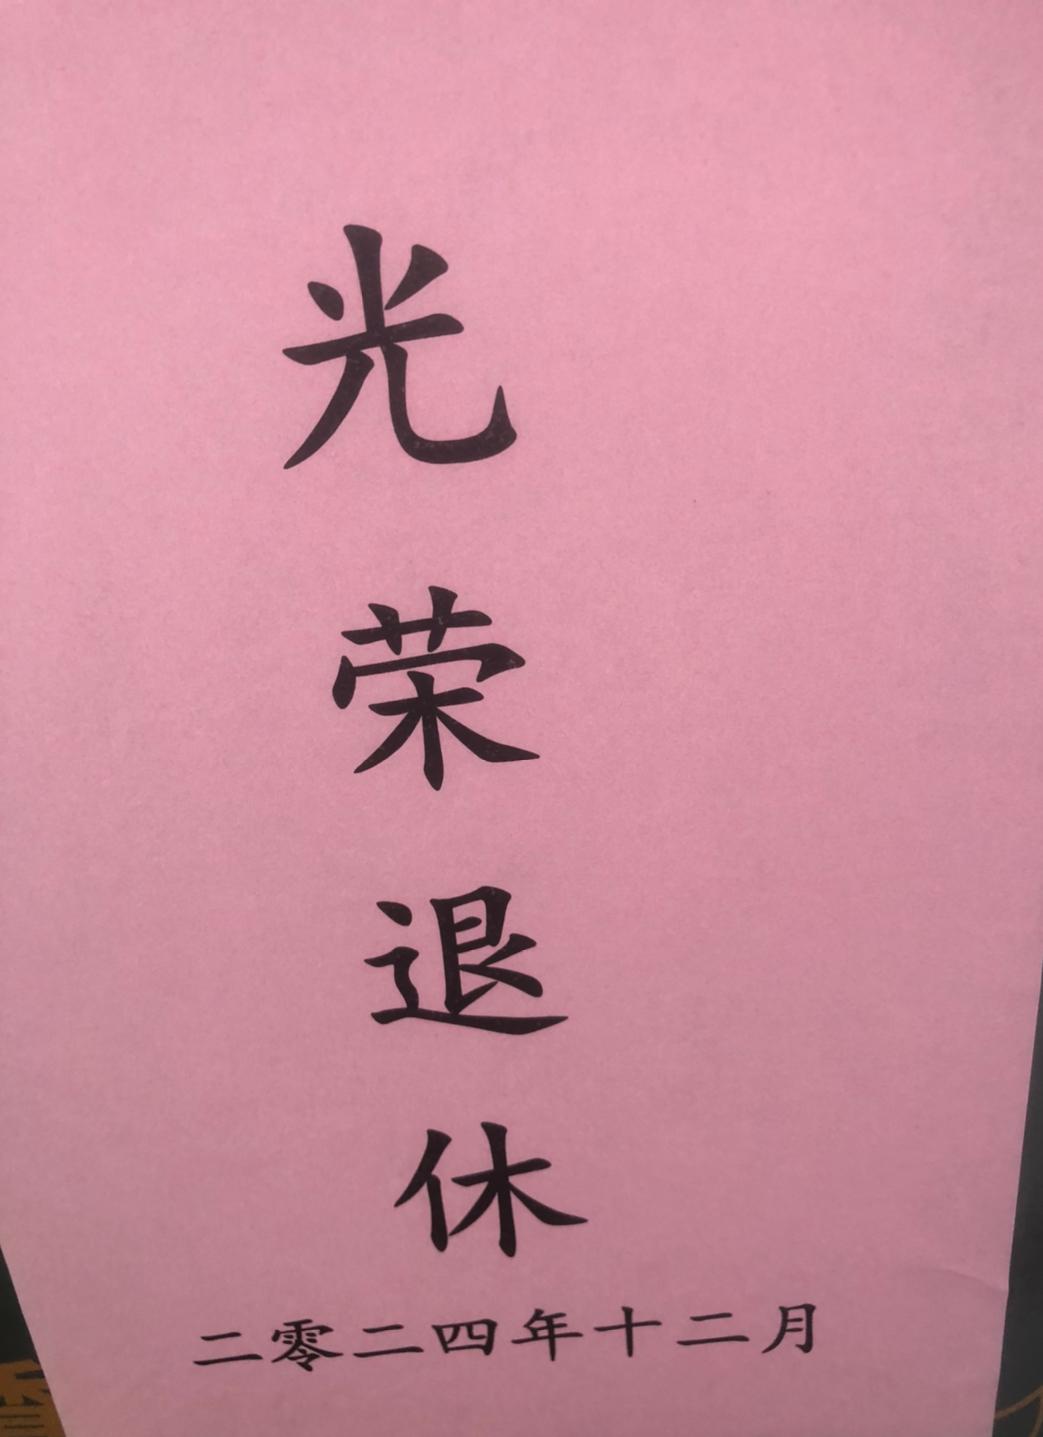 光荣退休
二零二四年十二月